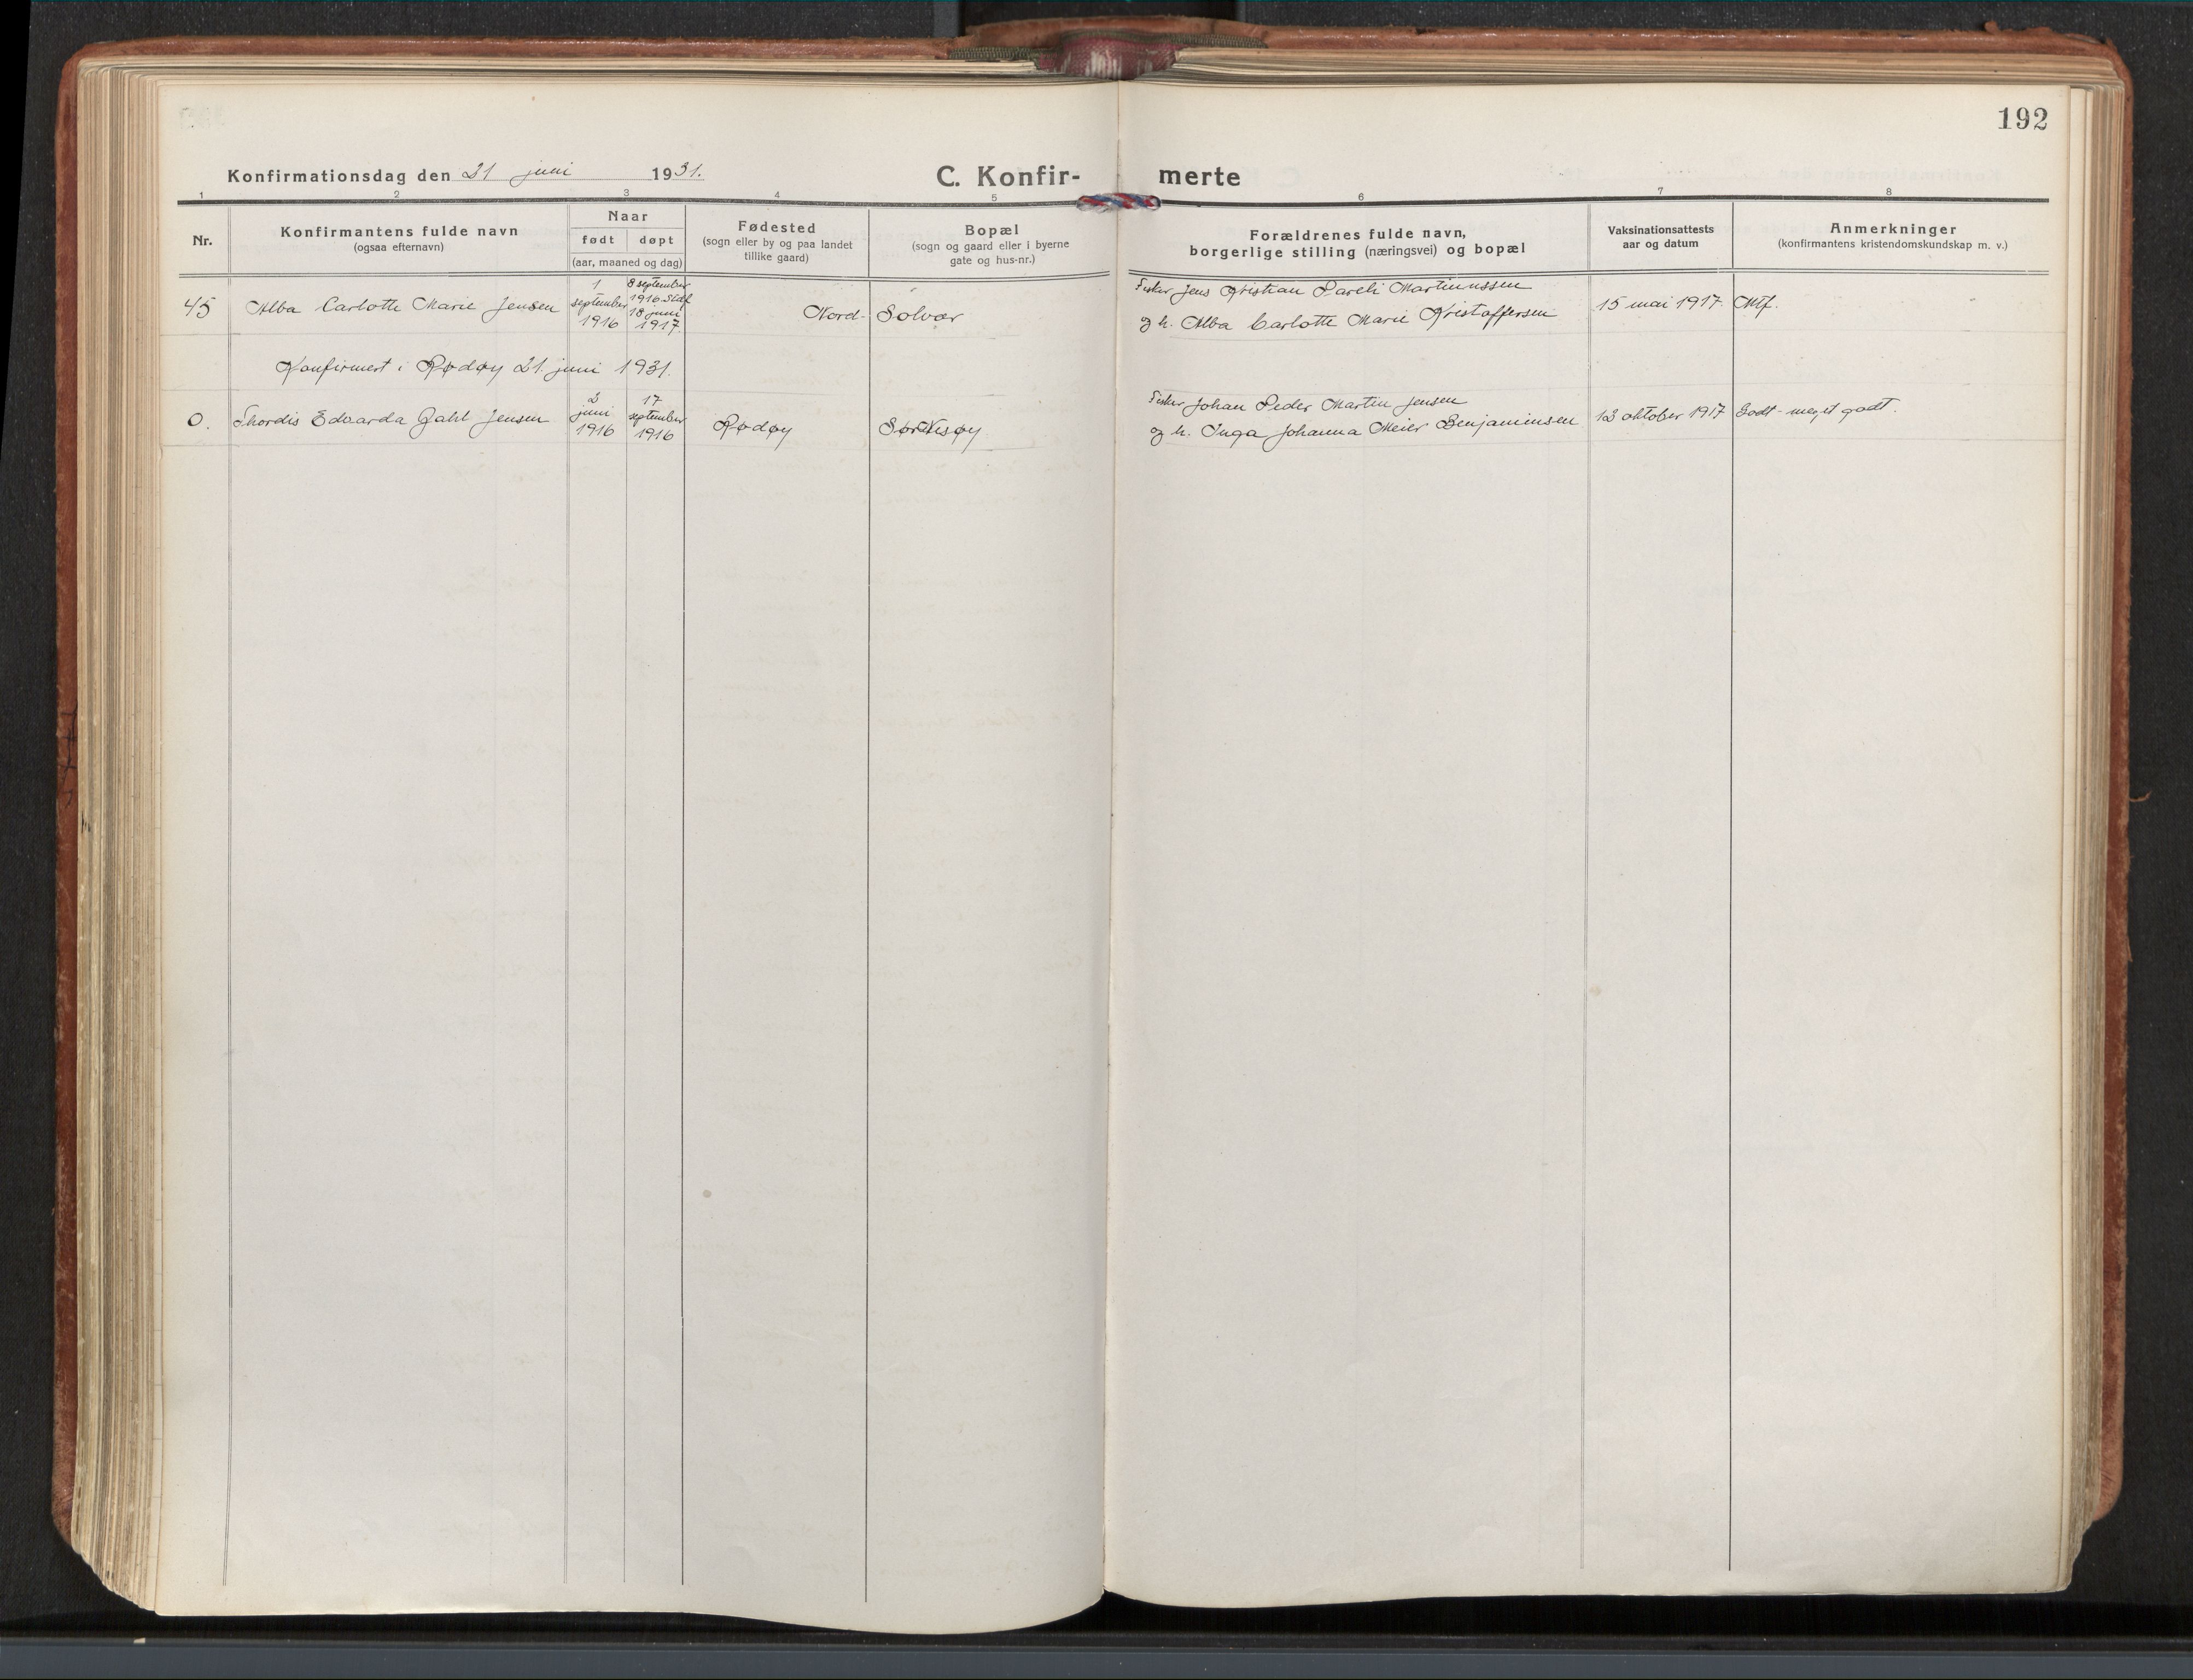 192
Konfirmationsdag den 21 juni 1931.
C. Konfir- merte
1 2 3 4 5 6 7 8
Nr.
Konfirmantens fulde navn
(ogsaa efternavn)
Naar
født døpt
(aar, maaned og dag)
Fødested
(sogn eller by og paa landet
tillike gaard)
Bopæl
(sogn og gaard eller i byerne
gate og hus-nr.)
Forældrenes fulde navn,
borgerlige stilling (næringsvei) og bopæl
Vaksinationsattests
aar og datum
Anmerkninger
(konfirmantens kristendomskundskap m. v.)
45 Alba Carlotte Marie Jensen
1
september
1916
8 september
1916 Stdf
18 juni
1917.
Nord- Solvær
Fisker Jens Kristian Pareli Martinussen
og h. Alba Carlotte Marie Kristoffersen
15 mai 1917. Mtf.
Konfirmert i Rødøy 21. juni 1931.
0. Thordis Edvarda Dahl Jensen
2
juni
1916
17
september
1916
Rødøy
Sør Nesøy
Fisker Johan Peder Martin Jensen
og h. Inga Johanna Meier Benjaminsen
13 oktober 1917
Godt - meget godt.